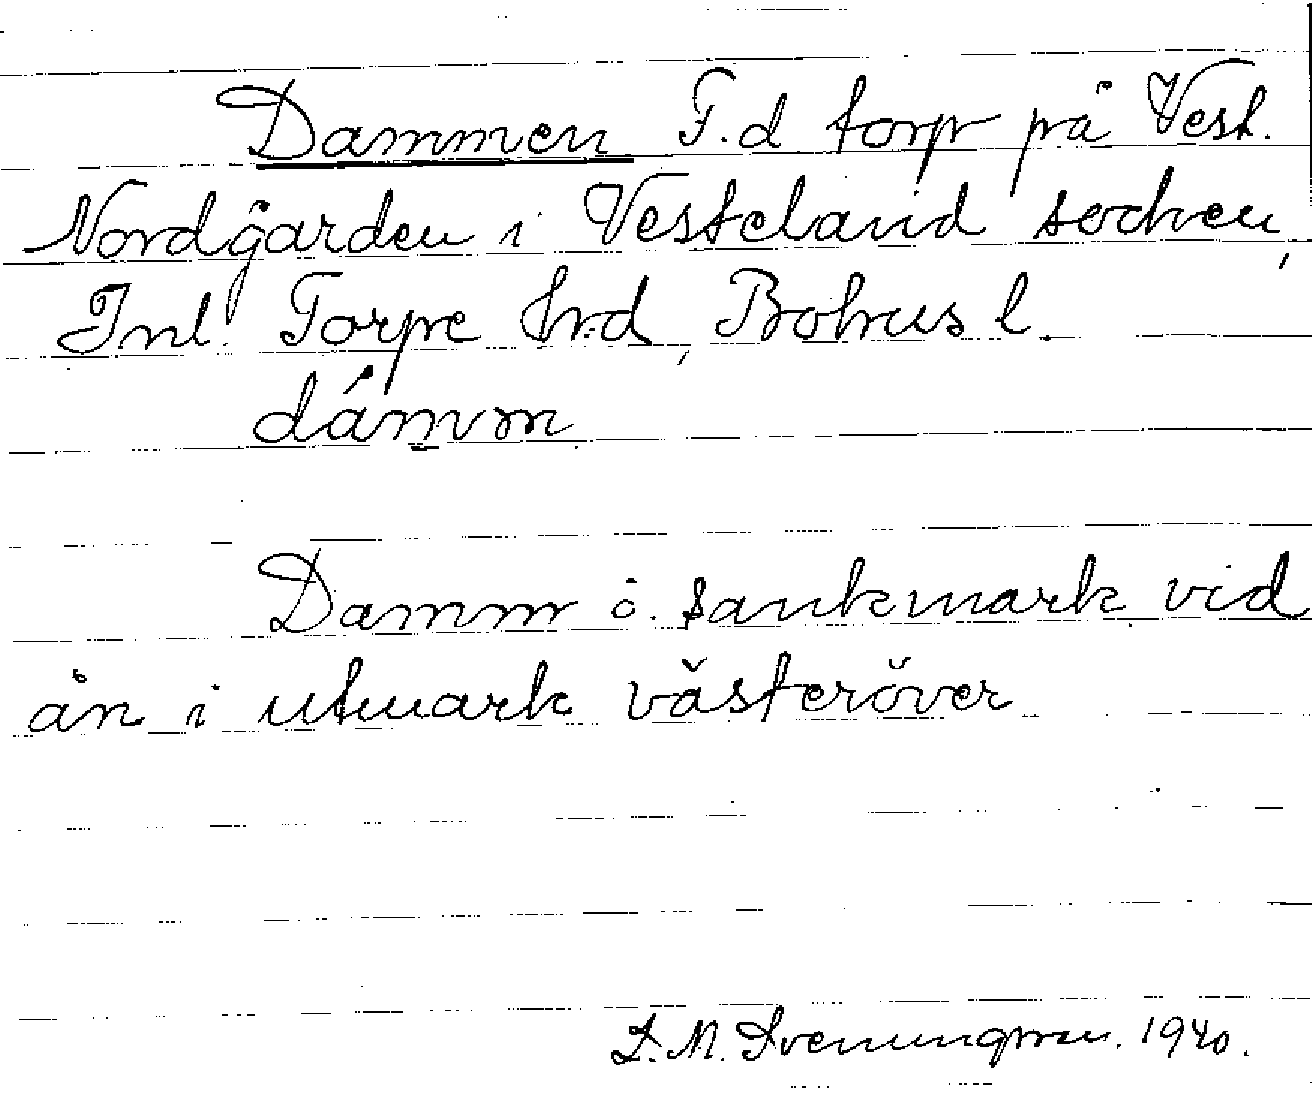 Dammen F.d torp på Vest.
Nordgården i Vesteland socken,
Inl. Torpe hrd, Bohus l.
dámm
Damm o. sankmark vid
ån i utmark västeröver
S. M. Svenungsson. 1940.